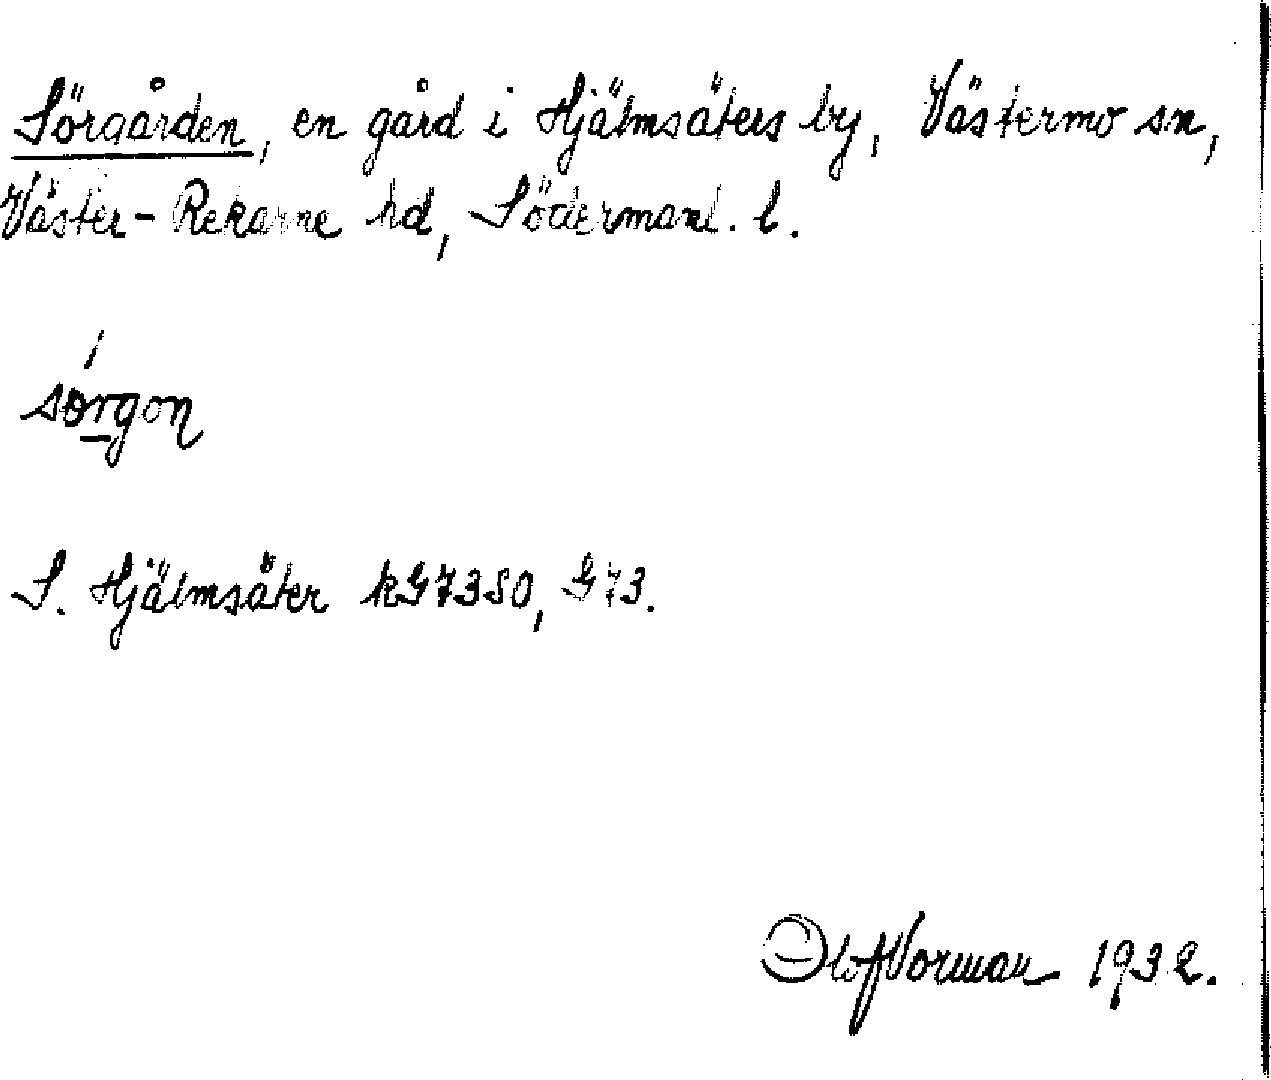 Sörgården, en gård i Hjälmsäters by, Västermo sn,
Väster-Rekarne hd, Södermanl. l.
sörgon
S. Hjälmsäter kG7380, G73.
Olof Vorman 1932.